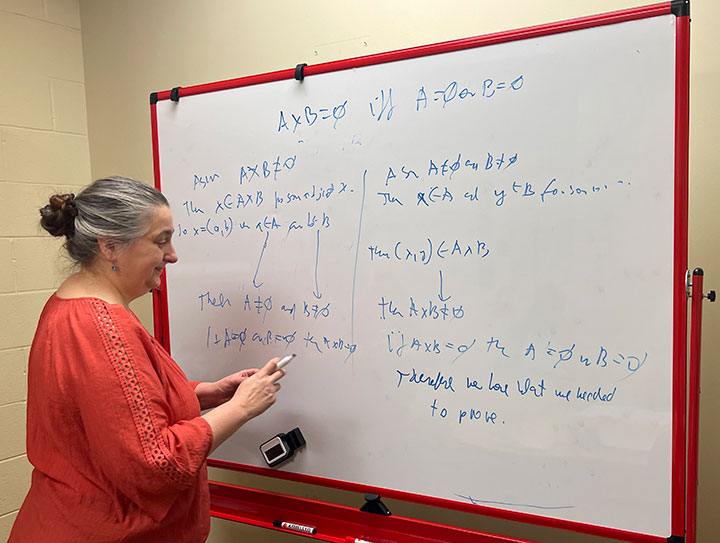 A×B=∅ iff A=∅ or B=∅
Assn A×B≠∅
Then x∈A×B for some obj x.
So x=(a,b) w a∈A and b∈B
Then A≠∅ and B≠∅
If A=∅ or B=∅ then A×B=∅
Assn A≠∅ and B≠∅
Then x∈A and y∈B for some
then (x,y)∈A×B
then A×B≠∅
if A×B=∅ then A=∅ or B=∅
Therefore we have what we needed
to prove.